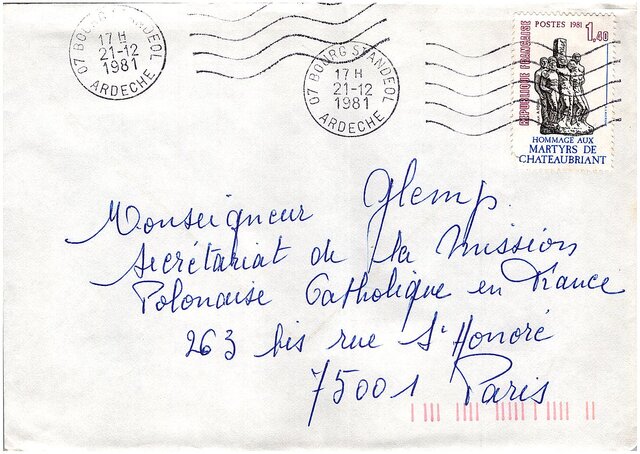 07 BOURG ST ANDEOL
17 H
21-12
1981
ARDECHE
07 BOURG ST ANDEOL
17 H
21-12
1981
ARDECHE
POSTES 1981
1,40
REPUBLIQUE FRANÇAISE
HOMMAGE AUX
MARTYRS DE
CHATEAUBRIANT
Monseigneur Glemp.
Secrétariat de la Mission
Polonaise Catholique en France
263 bis rue St Honoré
75001 Paris